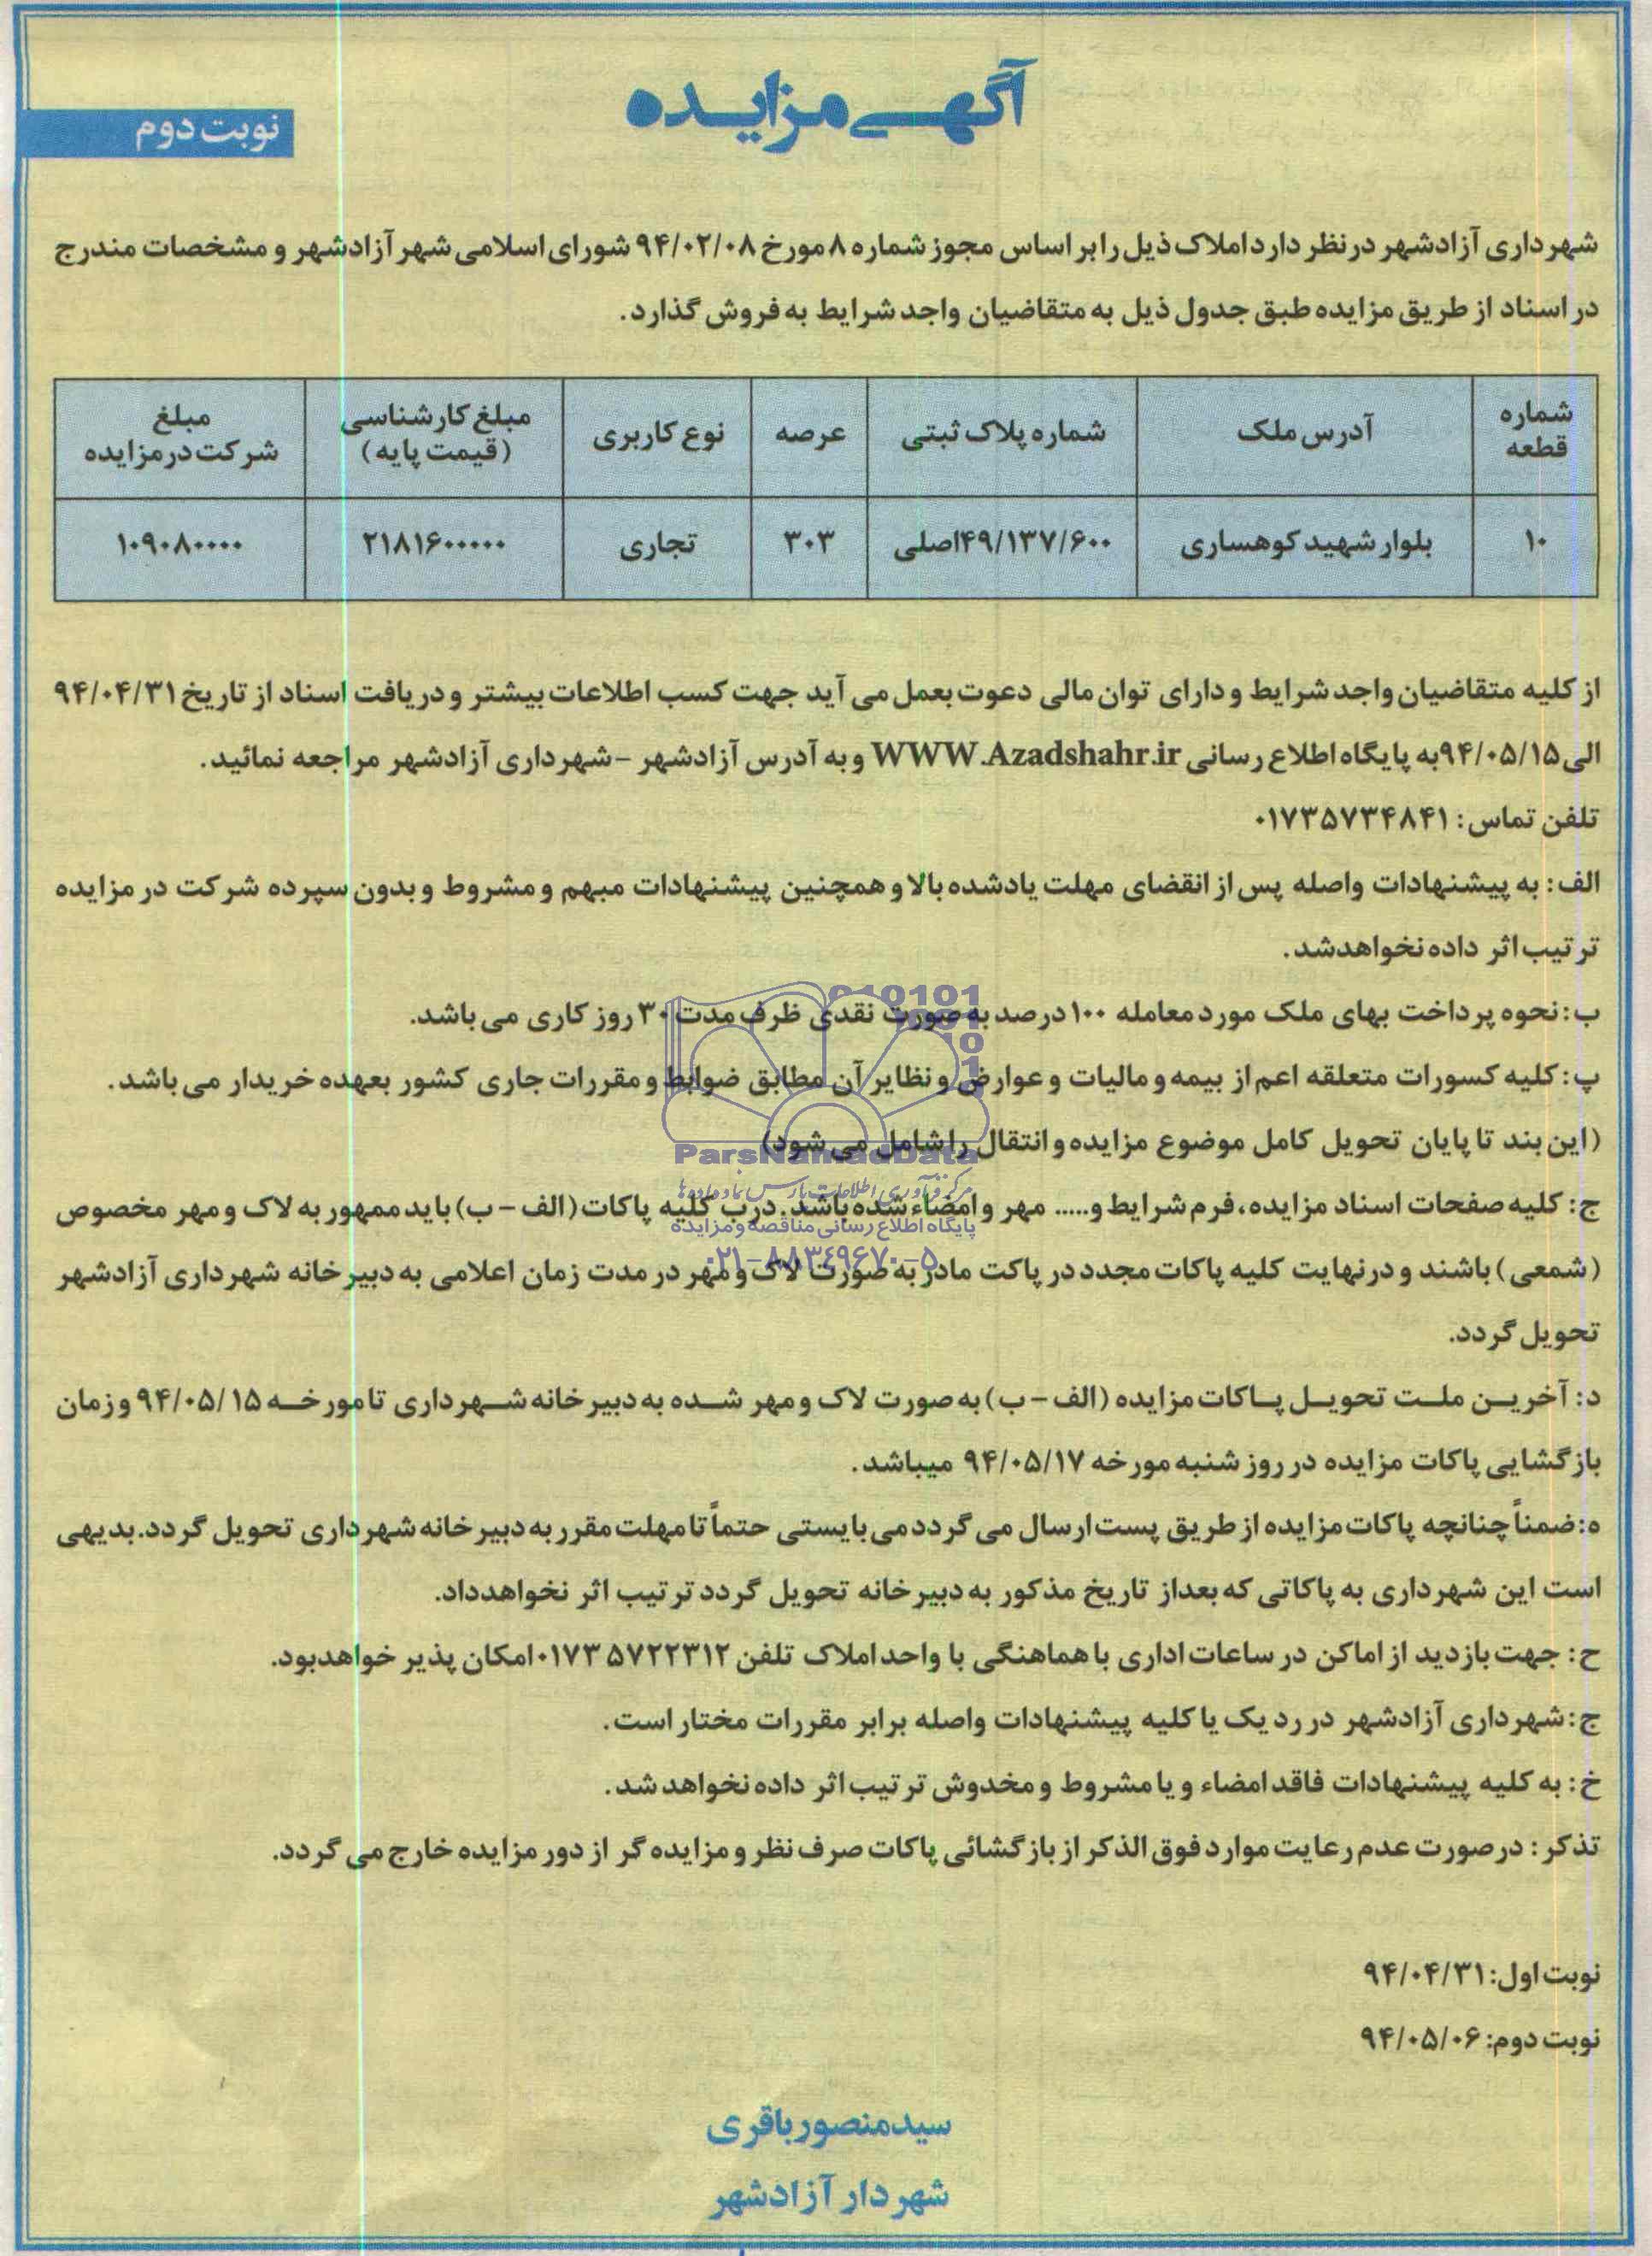 آگهی مزایده
نوبت دوم
شهرداری آزادشهر درنظر دارد املاک ذیل را بر اساس مجوز شماره ۸ مورخ ۹۴/۰۲/۰۸ شورای اسلامی شهر آزادشهر و مشخصات مندرج
در اسناد از طریق مزایده طبق جدول ذیل به متقاضیان واجد شرایط به فروش گذارد.
شماره قطعه	آدرس ملک	شماره پلاک ثبتی	عرصه	نوع کاربری	مبلغ کارشناسی (قیمت پایه)	مبلغ شرکت در مزایده
۱۰	بلوار شهید کوهساری	۴۹/۱۳۷/۶۰۰اصلی	۳۰۳	تجاری	۲۱۸۱۶۰۰۰۰۰	۱۰۹۰۸۰۰۰۰
از کلیه متقاضیان واجد شرایط و دارای توان مالی دعوت بعمل می آید جهت کسب اطلاعات بیشتر و دریافت اسناد از تاریخ ۹۴/۰۴/۳۱
الی ۹۴/۰۵/۱۵به پایگاه اطلاع رسانی WWW.Azadshahr.ir و به آدرس آزادشهر – شهرداری آزادشهر مراجعه نمائید.
تلفن تماس: ۰۱۷۳۵۷۳۴۸۴۱
الف: به پیشنهادات واصله پس از انقضای مهلت یادشده بالا و همچنین پیشنهادات مبهم و مشروط و بدون سپرده شرکت در مزایده
ترتیب اثر داده نخواهدشد.
ب: نحوه پرداخت بهای ملک مورد معامله ۱۰۰ درصد به صورت نقدی ظرف مدت ۳۰ روز کاری می باشد.
پ: کلیه کسورات متعلقه اعم از بیمه و مالیات و عوارض و نظایر آن مطابق ضوابط و مقررات جاری کشور بعهده خریدار می باشد.
(این بند تا پایان تحویل کامل موضوع مزایده و انتقال را شامل می شود)
ج: کلیه صفحات اسناد مزایده، فرم شرایط و..... مهر و امضاء شده باشد. درب کلیه پاکات (الف – ب) باید ممهور به لاک و مهر مخصوص
(شمعی) باشند و درنهایت کلیه پاکات مجدد در پاکت مادر به صورت لاک و مهر در مدت زمان اعلامی به دبیرخانه شهرداری آزادشهر
تحویل گردد.
د: آخرین ملت تحویل پاکات مزایده (الف – ب) به صورت لاک و مهر شده به دبیرخانه شهرداری تا مورخه ۹۴/۰۵/۱۵ و زمان
بازگشایی پاکات مزایده در روز شنبه مورخه ۹۴/۰۵/۱۷ میباشد.
ه: ضمناً چنانچه پاکات مزایده از طریق پست ارسال می گردد می بایستی حتماً تا مهلت مقرر به دبیرخانه شهرداری تحویل گردد. بدیهی
است این شهرداری به پاکاتی که بعداز تاریخ مذکور به دبیرخانه تحویل گردد ترتیب اثر نخواهدداد.
ح: جهت بازدید از اماکن در ساعات اداری با هماهنگی با واحد املاک تلفن ۰۱۷۳۵۷۲۲۳۱۲ امکان پذیر خواهدبود.
ج: شهرداری آزادشهر در رد یک یا کلیه پیشنهادات واصله برابر مقررات مختار است.
خ: به کلیه پیشنهادات فاقد امضاء و یا مشروط و مخدوش ترتیب اثر داده نخواهد شد.
تذکر: درصورت عدم رعایت موارد فوق الذکر از بازگشائی پاکات صرف نظر و مزایده گر از دور مزایده خارج می گردد.
نوبت اول: ۹۴/۰۴/۳۱
نوبت دوم: ۹۴/۰۵/۰۶
سیدمنصور باقری
شهردار آزادشهر
ParsNamadData
مرکز فرآوری اطلاعات پارس نماد داده ها
پایگاه اطلاع رسانی مناقصه و مزایده
۰۲۱–۸۸۳۴۹۶۷۰–۵